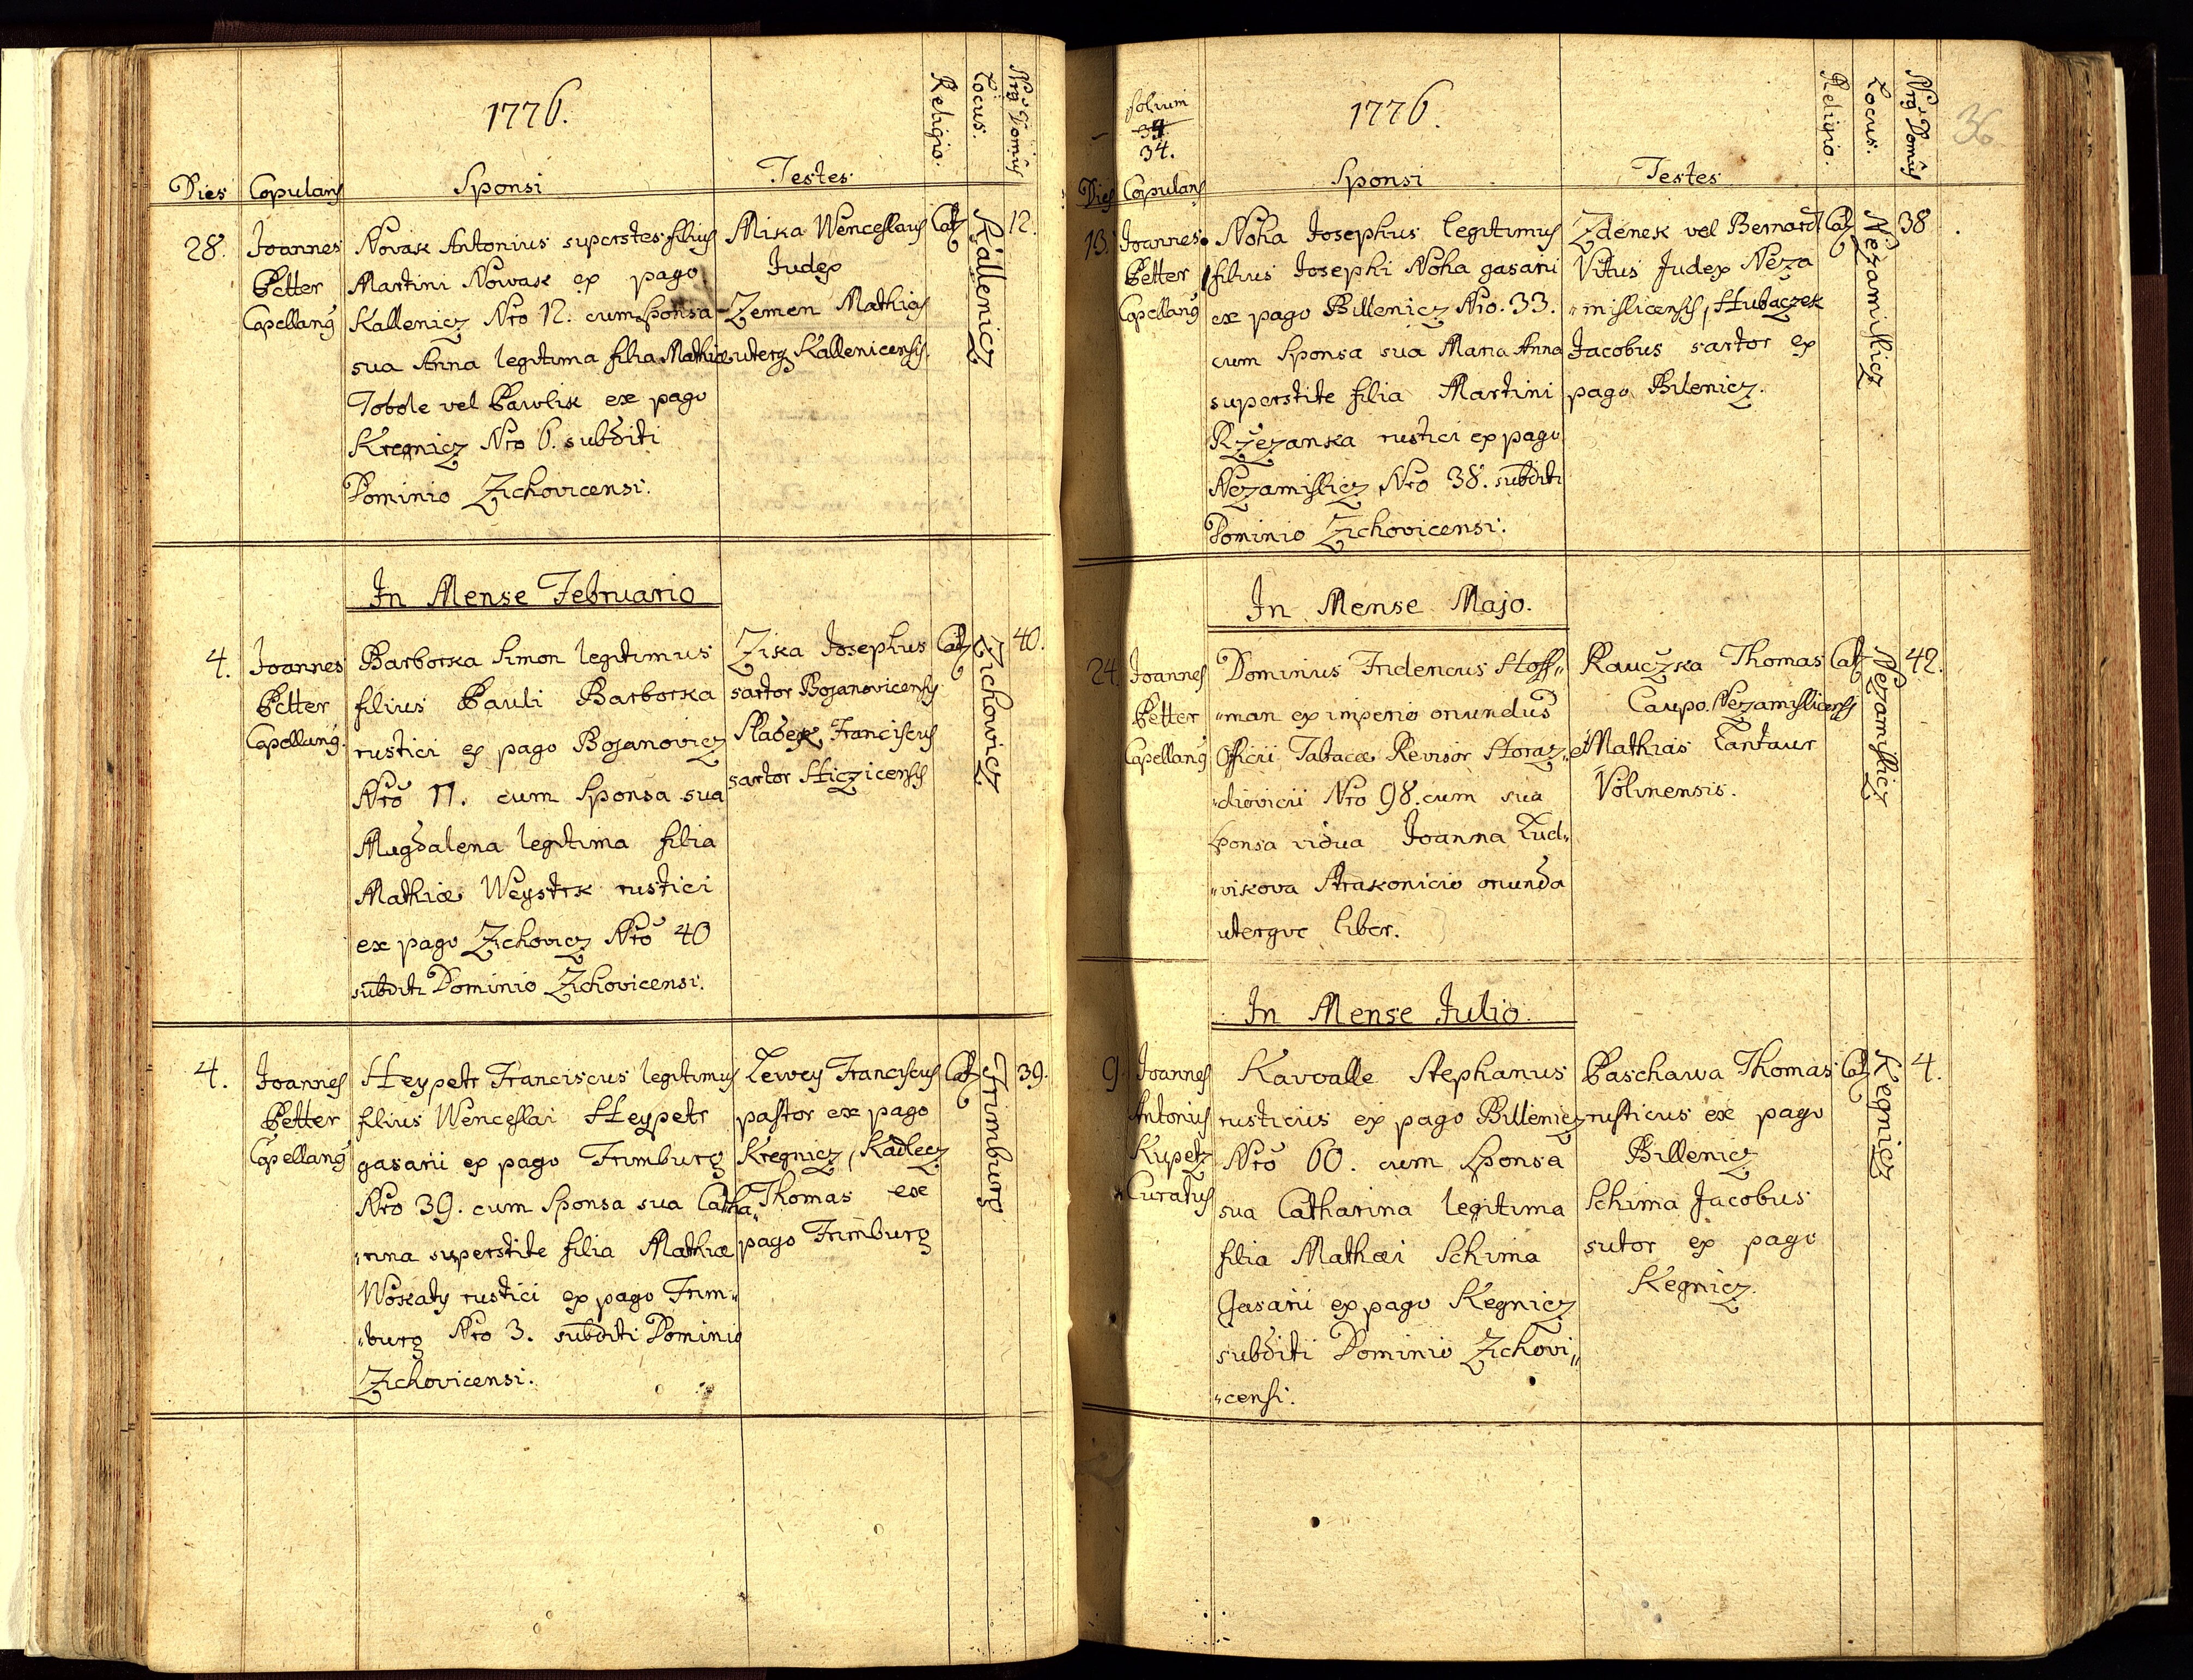 1776.
Religio.
Locus.
Nrg Domûs
Dies
Copulans
Sponsi
Testes
28.
Joannes
Petter
Capellang
Novak Antonius superstes filius
Martini Nowak ex pago
Kallenicz Nro 12. cum Sponsa
sua Anna legitima filia Mathiæ
Tobole vel Pawlik ex pago
Kregnicz Nro 6. subditi
Dominio Zichovicensi.
Mika Wenceslaus
Judex
Zemen Mathias
uterq Kallenicensis.
Cat
Kallenicz
12.
In Mense Februario
4.
Joannes
Petter
Capellang.
Barborka Simon legitimus
filius Pauli Barborka
rustici ex pago Bojanovicz
Nrô 11. cum Sponsa sua
Magdalena legitima filia
Mathiæ Weystrk rustici
ex pago Zichovicz Nrô 40
subditi Dominio Zichovicensi.
Zika Josephus
sartor Bojanovicensis
Sladek Franciscus
sartor Hiczicensis
Cat
Zichovicz
40.
4.
Joannes
Petter
Capellang
Heypetr Franciscus legitimus
filius Wenceslai Heypetr
gasarii ex pago Frimburg
Nro 39. cum Sponsa sua Catha„
„rina superstite filia Mathiæ
Woskaty rustici ex pago Frim„
„burg Nro 3. subditi Dominio
Zichovicensi.
Lewey Franciscus
pastor ex pago
Kregnicz, Kadlecz
Thomas ex
pago Frimburg
Cat
Frimburg
39.
folium
34.
34.
1776.
Religio.
Locus.
Nrg Domûs
36
Dies
Copulans
Sponsi
Testes
13.
Joannes
Petter
Capellang
Noha Josephus legitimus
filius Josephi Noha gasarii
ex pago Billenicz Nro. 33.
cum Sponsa sua Maria Anna
superstite filia Martini
Rzezanka rustici ex pago
Nezamislicz Nro 38. subditi
Dominio Zichovicensi.
Zdenek vel Bernard
Vitus Judex Neza
„mislicensis, Hubaczek
Jacobus sartor ex
pago Bilenicz.
Cat
Nezamislicz
38
In Mense Majo.
24.
Joannes
Petter
Capellang
Dominus Fridericus Hoff„
„man ex imperio oriundus
Officii Tabacæ Revisor Horaz„
„diovicii Nro 98. cum sua
Sponsa vidua Joanna Lud„
„vikova Strakonicio oriunda
uterque liber.
Kauczka Thomas
Caupo Nezamislicensis
et Mathias Tantaur
Volinensis.
Cat
Nezamislicz
42.
In Mense Julio.
9.
Joannes
Antonius
Kupetz
Curatus
Kavalle Stephanus
rusticus ex pago Billenicz
Nrô 60. cum Sponsa
sua Catharina legitima
filia Mathæi Schima
Gasarii ex pago Kegnicz
subditi Dominio Zichovi„
„censi.
Paschawa Thomas
rusticus ex pago
Billenicz
Schima Jacobus
sutor ex pago
Kegnicz.
Cat
Kegnicz
4.